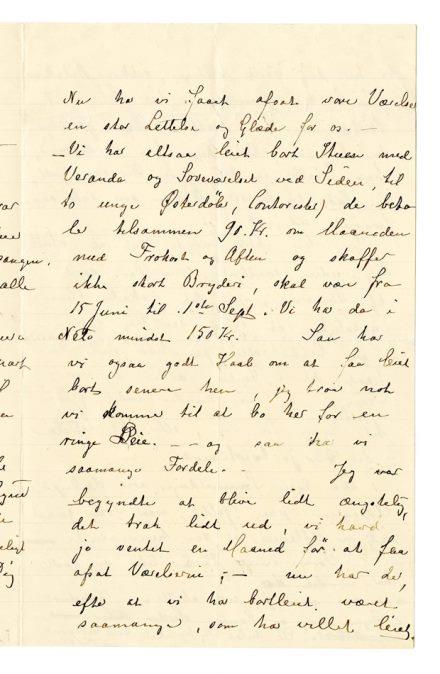 Nu har vi faaet afsat vore Værelser
en stor Lettelse og Glæde for os. —
— Vi har altsaa leiet bort Stuen med
Veranda og Soveværelset ved Siden, til
to unge Østerdøler, (Contorister) de beta-
ler tilsammen 90. Kr. om Maaneden
med Frokost og Aften og skaffer
ikke stort Bryderi, skal vær fra
15 Juni til 1ste Sept. Vi har da i
Neto mindst 150 Kr. Saa har
vi ogsaa godt Haab om at faa leiet
bort senere hen, jeg tror nok
vi komme til at bo her for en
ringe Leie. — — og saa har vi
saamange Fordele. — Jeg var
begyndte at blive lidt ængstelig,
det trak lidt ud, vi havd
jo ventet en Maaned før at faa
afsat Værelserne; — nu har de,
efter at vi har bortleiet, været
saamange, som har villet leiet.
var
alle